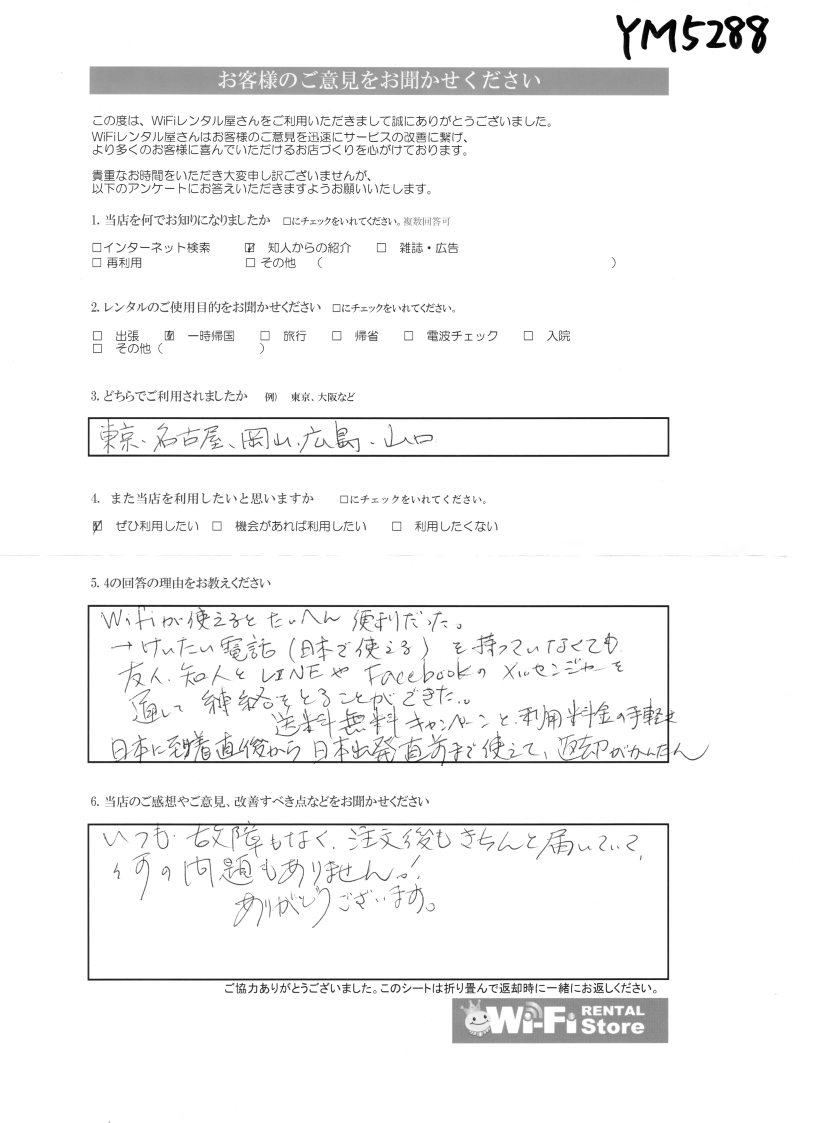 YM5288
お客様のご意見をお聞かせください
この度は、WiFiレンタル屋さんをご利用いただきまして誠にありがとうございました。
WiFiレンタル屋さんはお客様のご意見を迅速にサービスの改善に繋げ、
より多くのお客様に喜んでいただけるお店づくりを心がけております。
貴重なお時間をいただき大変申し訳ございませんが、
以下のアンケートにお答えいただきますようお願いいたします。
1. 当店を何でお知りになりましたか □にチェックをいれてください。複数回答可
□インターネット検索 ☑ 知人からの紹介 □ 雑誌・広告
□ 再利用 □ その他 ( )
2. レンタルのご使用目的をお聞かせください □にチェックをいれてください。
□ 出張 ☑ 一時帰国 □ 旅行 □ 帰省 □ 電波チェック □ 入院
□ その他 ( )
3. どちらでご利用されましたか 例) 東京、大阪など
東京、名古屋、岡山、広島、山口
4. また当店を利用したいと思いますか □にチェックをいれてください。
☑ ぜひ利用したい □ 機会があれば利用したい □ 利用したくない
5. 4の回答の理由をお教えください
Wifiが使えるとたいへん便利だった。
→けいたい電話(日本で使える)を持っていなくても
友人、知人とLINEやFacebookのメッセンジャーを
通して連絡をとることができた。
送料無料キャンペーンと、利用料金の手軽さ
日本に到着直後から日本出発直前まで使えて、返却がかんたん
6. 当店のご感想やご意見、改善すべき点などをお聞かせください
いつも故障もなく、注文後もきちんと届いていて、
何の問題もありません。!
ありがとうございます。
ご協力ありがとうございました。このシートは折り畳んで返却時に一緒にお返しください。
Wi-Fi RENTAL Store